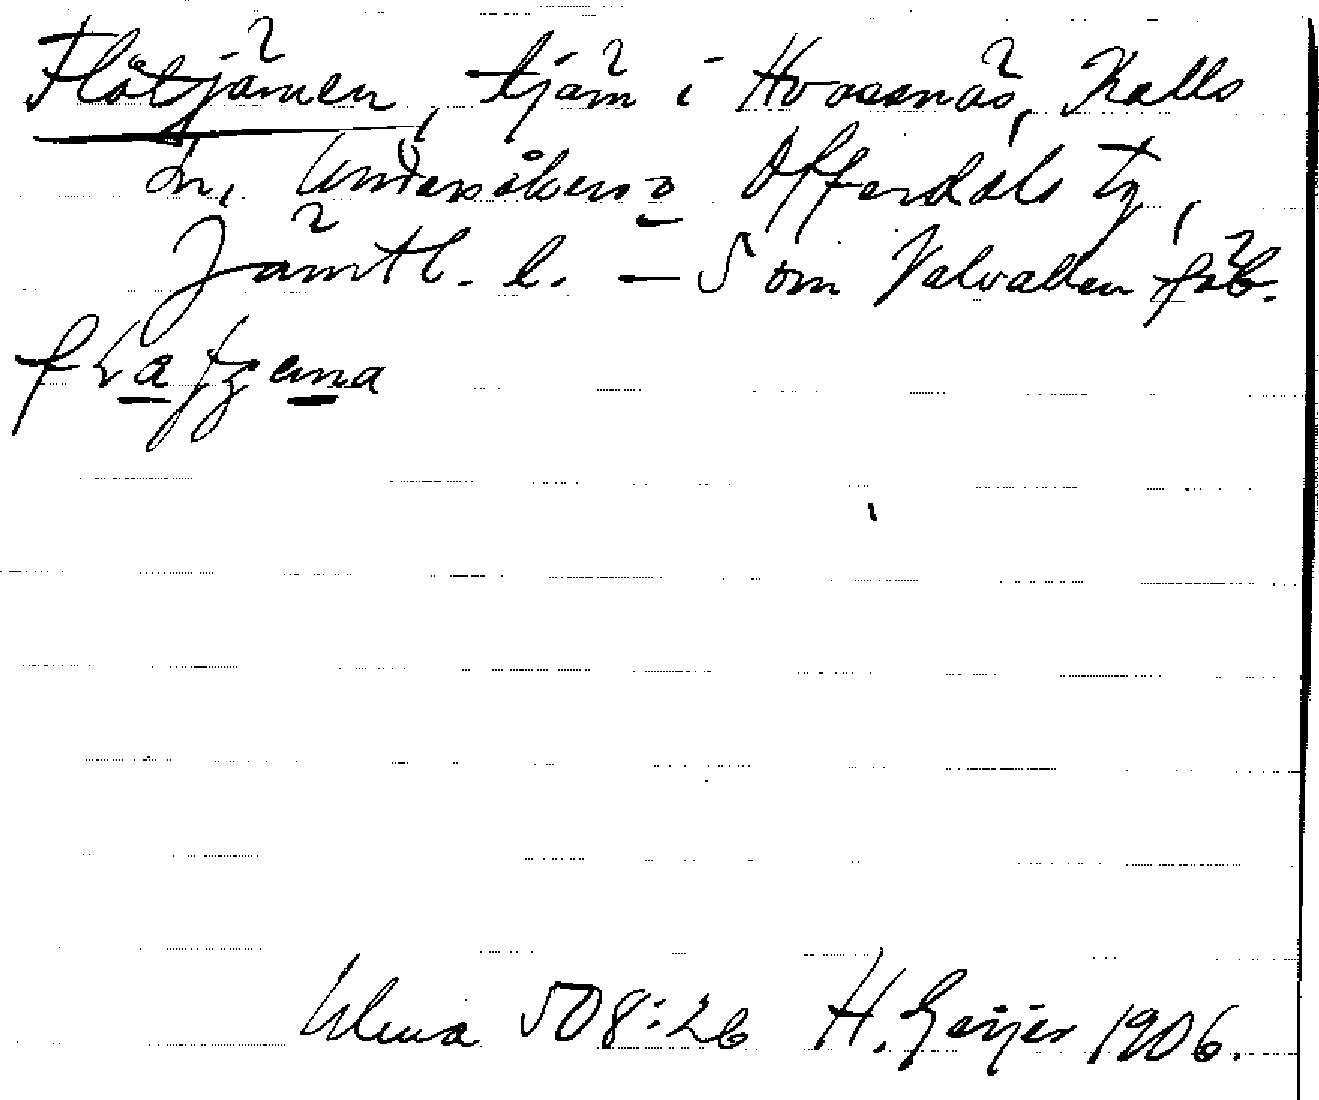 Flåtjärnen, tjärn i Huvasnäs, Kalls
sn, Undersåkers o Offerdals tg,
Jämtl. l. — S om Valvallen fäb.
Ulma 508:26 H. Geijer 1906.